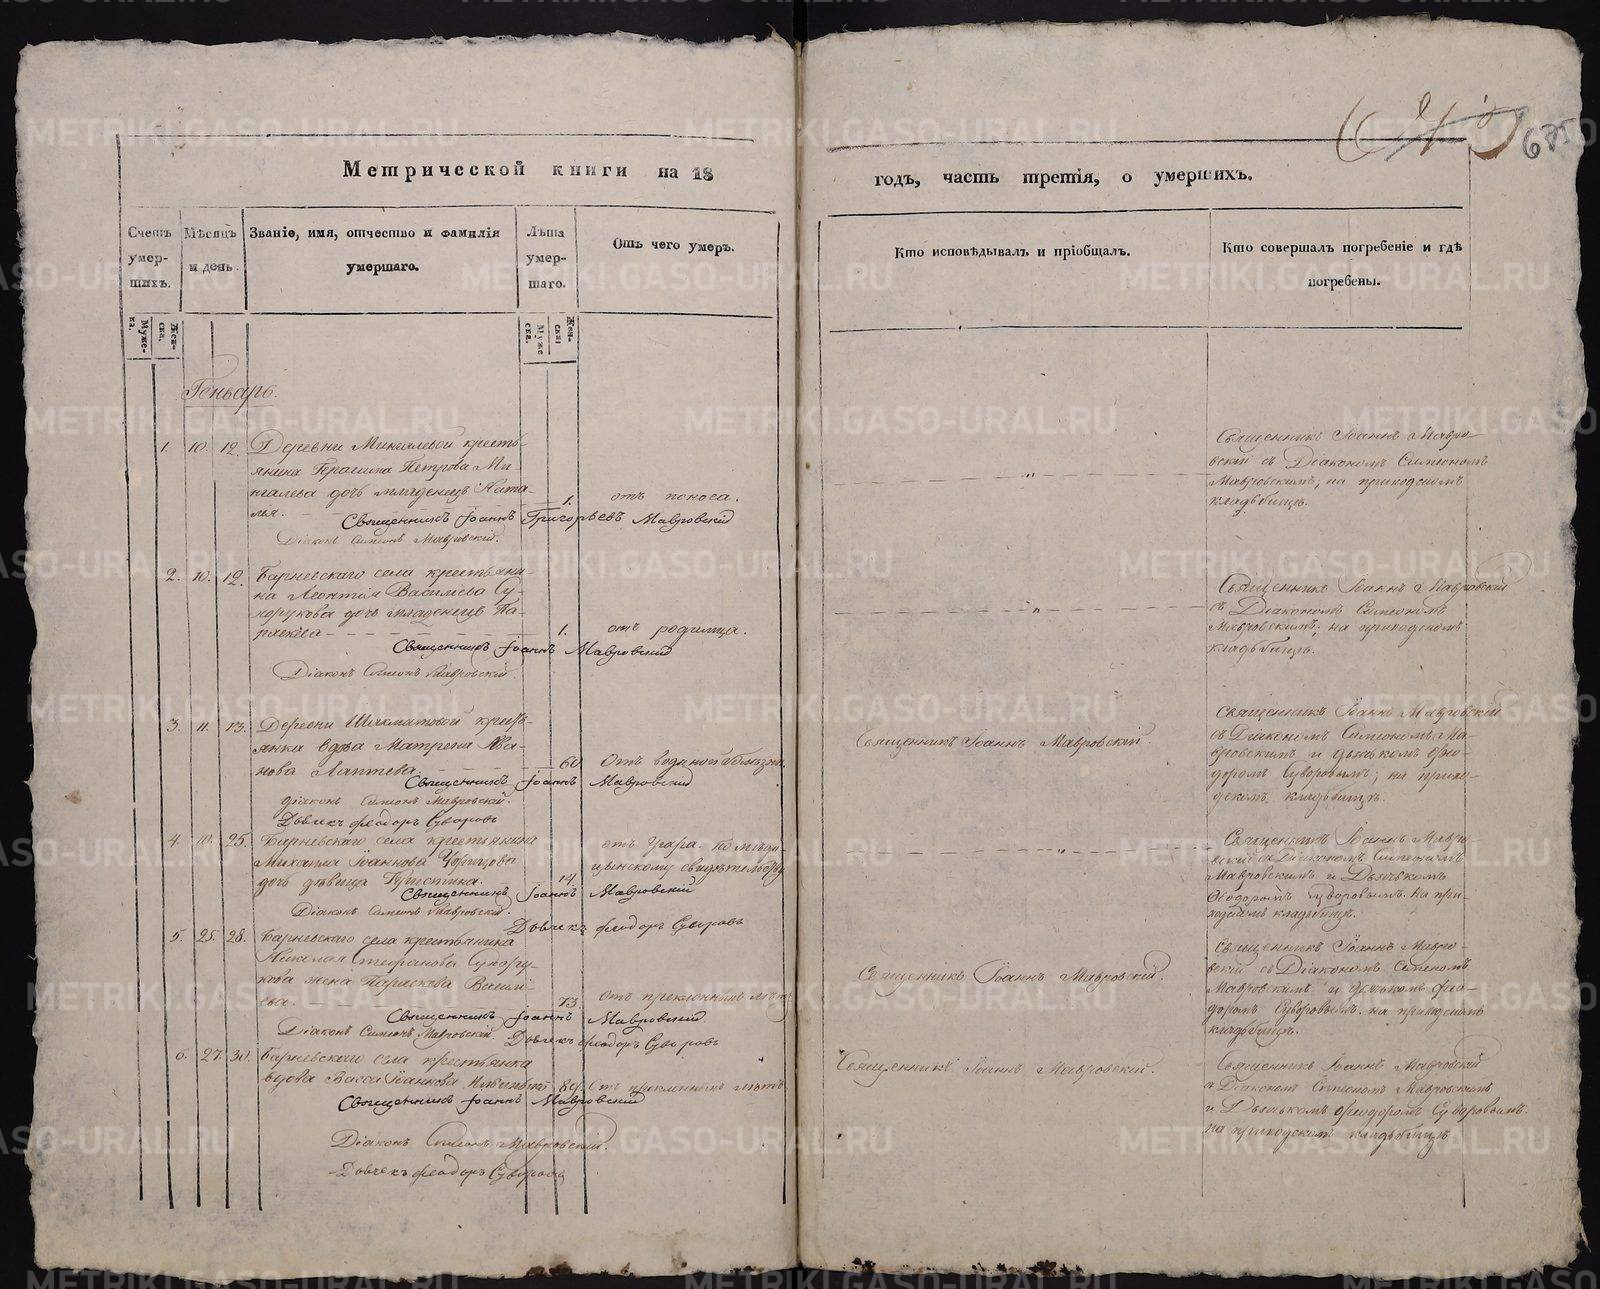 Метрической книги на 18
годъ, часть третія, о умершихъ.
675
Счетъ умер-шихъ.
Мѣсяцъ и день.
Званіе, имя, отчество и фамилія умершаго.
Лѣта умер-шаго.
Отъ чего умеръ.
Кто исповѣдывалъ и пріобщалъ.
Кто совершалъ погребеніе и гдѣ погребены.
Муже-ка.
Жен-ска.
Муже ска.
Жен-ски
Генварь.
1. 10. 12. Деревни Микалевой кресть-
янина Герасима Петрова Ми-
калева дочь младенецъ Ната-
лья. 1. отъ поноса.
Священникъ Іоаннъ Григорьевъ Мавровскій
Діаконъ Симеонъ Мавровскій.
Священникъ Іоаннъ Мавро-
вскій съ Діакономъ Симеономъ
Мавровскимъ, на приходскомъ
кладбищѣ.
2. 10. 12. Барневскаго села крестьяни-
на Леонтія Васильева Су-
хорукова дочь младенецъ Па-
раскева 1. отъ родимца.
Священникъ Іоаннъ Мавровскій
Діаконъ Симеонъ Мавровскій
Священникъ Іоаннъ Мавровскій
съ Діакономъ Симеономъ
Мавровскимъ; на приходскомъ
кладбищѣ.
3. 11. 13. Деревни Шахматовой кресть-
янка вдова Матрена Ива-
нова Лаптева 60. Отъ водяной болѣзни.
Священникъ Іоаннъ Мавровскій
діаконъ Симеонъ Мавровскій.
Дьячекъ Феодоръ Суворовъ
Священникъ Іоаннъ Мавровскій.
Священникъ Іоаннъ Мавровскій
съ Діакономъ Симеономъ Ма-
вровскимъ и дьячкомъ Фео-
доромъ Суворовымъ; на прихо-
дскомъ кладбищѣ.
4. 10. 25. Барневскаго села крестьянина
Михаила Іоаннова
дочь дѣвица Христина. 14.
отъ угара. По меди-
цынскому свидѣтельству
Священникъ Іоаннъ Мавровскій
Діаконъ Симеонъ Мавровскій.
Дьячекъ Феодоръ Суворовъ
Священникъ Іоаннъ Мавро-
вскій съ Діакономъ Симеономъ
Мавровскимъ и Дьячкомъ
Феодоромъ Суворовымъ. на при-
ходскомъ кладбищѣ.
5. 25. 28. Барневскаго села крестьянина
Николая Стефанова Сухору-
кова жена Параскева Василь-
ева. 73 отъ преклонныхъ лѣтъ
Священникъ Іоаннъ Мавровскій
Діаконъ Симеонъ Мавровскій. Дьячекъ Феодоръ Суворовъ
Священникъ Іоаннъ Мавровскій.
Священникъ Іоаннъ Мавро-
вскій съ Діакономъ Симеономъ
Мавровскимъ и дьячкомъ Фео-
доромъ Суворовымъ. на приходскомъ
кладбищѣ.
6. 27. 30. Барневскаго села крестьянка
вдова Васса Іоаннова 89. Отъ преклонныхъ лѣтъ
Священникъ Іоаннъ Мавровскій
Діаконъ Симеонъ Мавровскій.
Дьячекъ Феодоръ Суворовъ
Священникъ Іоаннъ Мавровскій.
Священникъ Іоаннъ Мавровскій
съ Діакономъ Симеономъ Мавровскимъ
и Дьячкомъ Феодоромъ Суворовымъ.
на приходскомъ кладбищѣ
METRIKI.GASO-URAL.RU